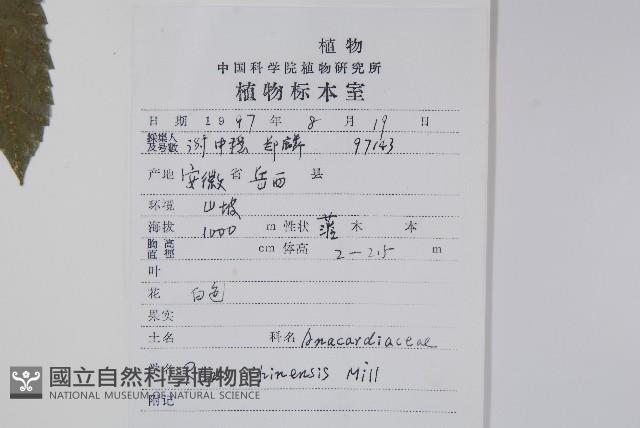 植物
中国科学院植物研究所
植物标本室
日期 1997 年 8 月 19 日
採集人及号數 谢中稳 郑 97143
产地 安徽 省 岳西 县
环境 山坡
海拔 1000 m 性状 灌 木 本
胸高直徑 cm 体高 2-2.5 m
叶
花 白色
果实
土名 科名 Anacardiaceae
学名 chinensis Mill
附记
國立自然科學博物館
NATIONAL MUSEUM OF NATURAL SCIENCE